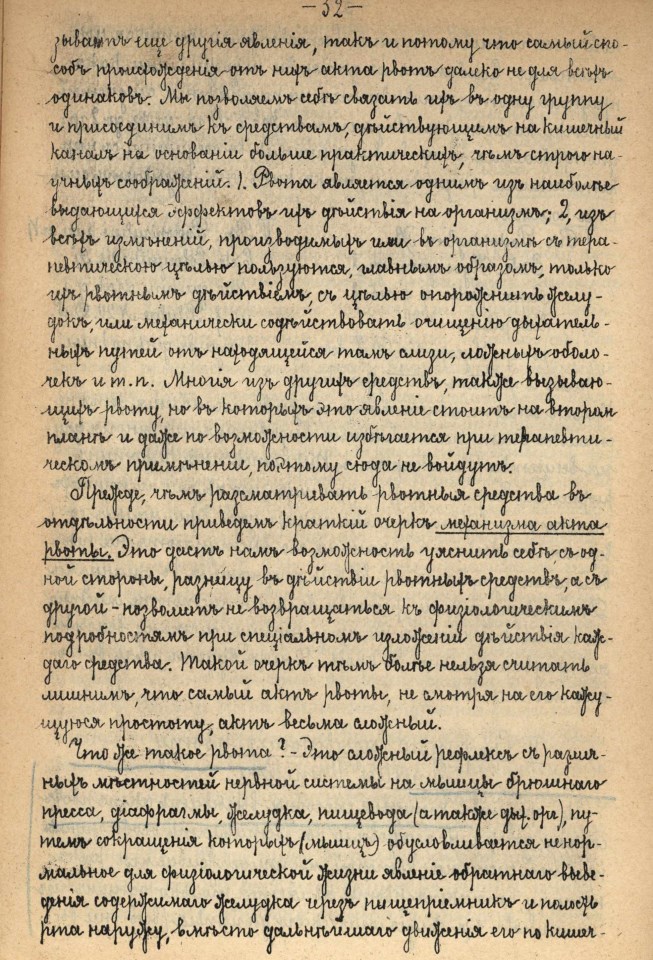 — 32 —
зываютъ еще другія явленія, такъ и потому что самый спо-
собъ происхожденія отъ нихъ акта рвотъ далеко не для всѣхъ
одинаковъ. Мы позволяемъ себѣ связать ихъ въ одну группу
и присоединимъ къ средствамъ, дѣйствующемъ на кишечный
каналъ на основаніи больше практическихъ, чѣмъ строго на-
учныхъ соображеній. 1. Рвота является однимъ изъ наиболѣе
выдающихся эффектовъ ихъ дѣйствія на организмъ; 2, изъ
всѣхъ измѣненій, производимыхъ ими въ организмѣ съ тера-
певтическою цѣлью пользуются, главнымъ образомъ, только
ихъ рвотнымъ дѣйствіемъ, съ цѣлью опорожнить желу-
докъ, или механически содѣйствовать очищенію дыхатель-
ныхъ путей отъ находящейся тамъ слизи, ложныхъ оболо-
чекъ и т.п. Многія изъ другихъ средствъ, также вызываю-
щихъ рвоту, но въ которыхъ это явленіе стоитъ на второмъ
планѣ и даже по возможности избѣгается при терапевти-
ческомъ примѣненіи, поэтому сюда не войдутъ.
Прежде, чѣмъ разсматривать рвотныя средства въ
отдѣльности приведемъ краткій очеркъ механизма акта
рвоты. Это дастъ намъ возможность уяснить себѣ, съ од-
ной стороны, разницу въ дѣйствіи рвотныхъ средствъ, а съ
другой - позволитъ не возвращаться къ физіологическимъ
подробностямъ при спеціальномъ изложеніи дѣйствія каж-
даго средства. Такой очеркъ тѣмъ болѣе нельзя считать
лишнимъ, что самый актъ рвоты, не смотря на его кажу-
щуюся простоту, актъ весьма сложный.
Что же такое рвота? - Это сложный рефлексъ съ различ-
ныхъ мѣстностей нервной системы на мышцы брюшнаго
пресса, діафрагмы, желудка, пищевода (а также дых. орг.), пу-
темъ сокращенія которыхъ (мышцъ) обусловливается ненор-
мальное для физіологической жизни явленіе обратнаго выве-
денія содержимаго желудка черезъ пищепріемникъ и полость
рта наружу, вмѣсто дальнѣйшаго движенія его по кишеч-